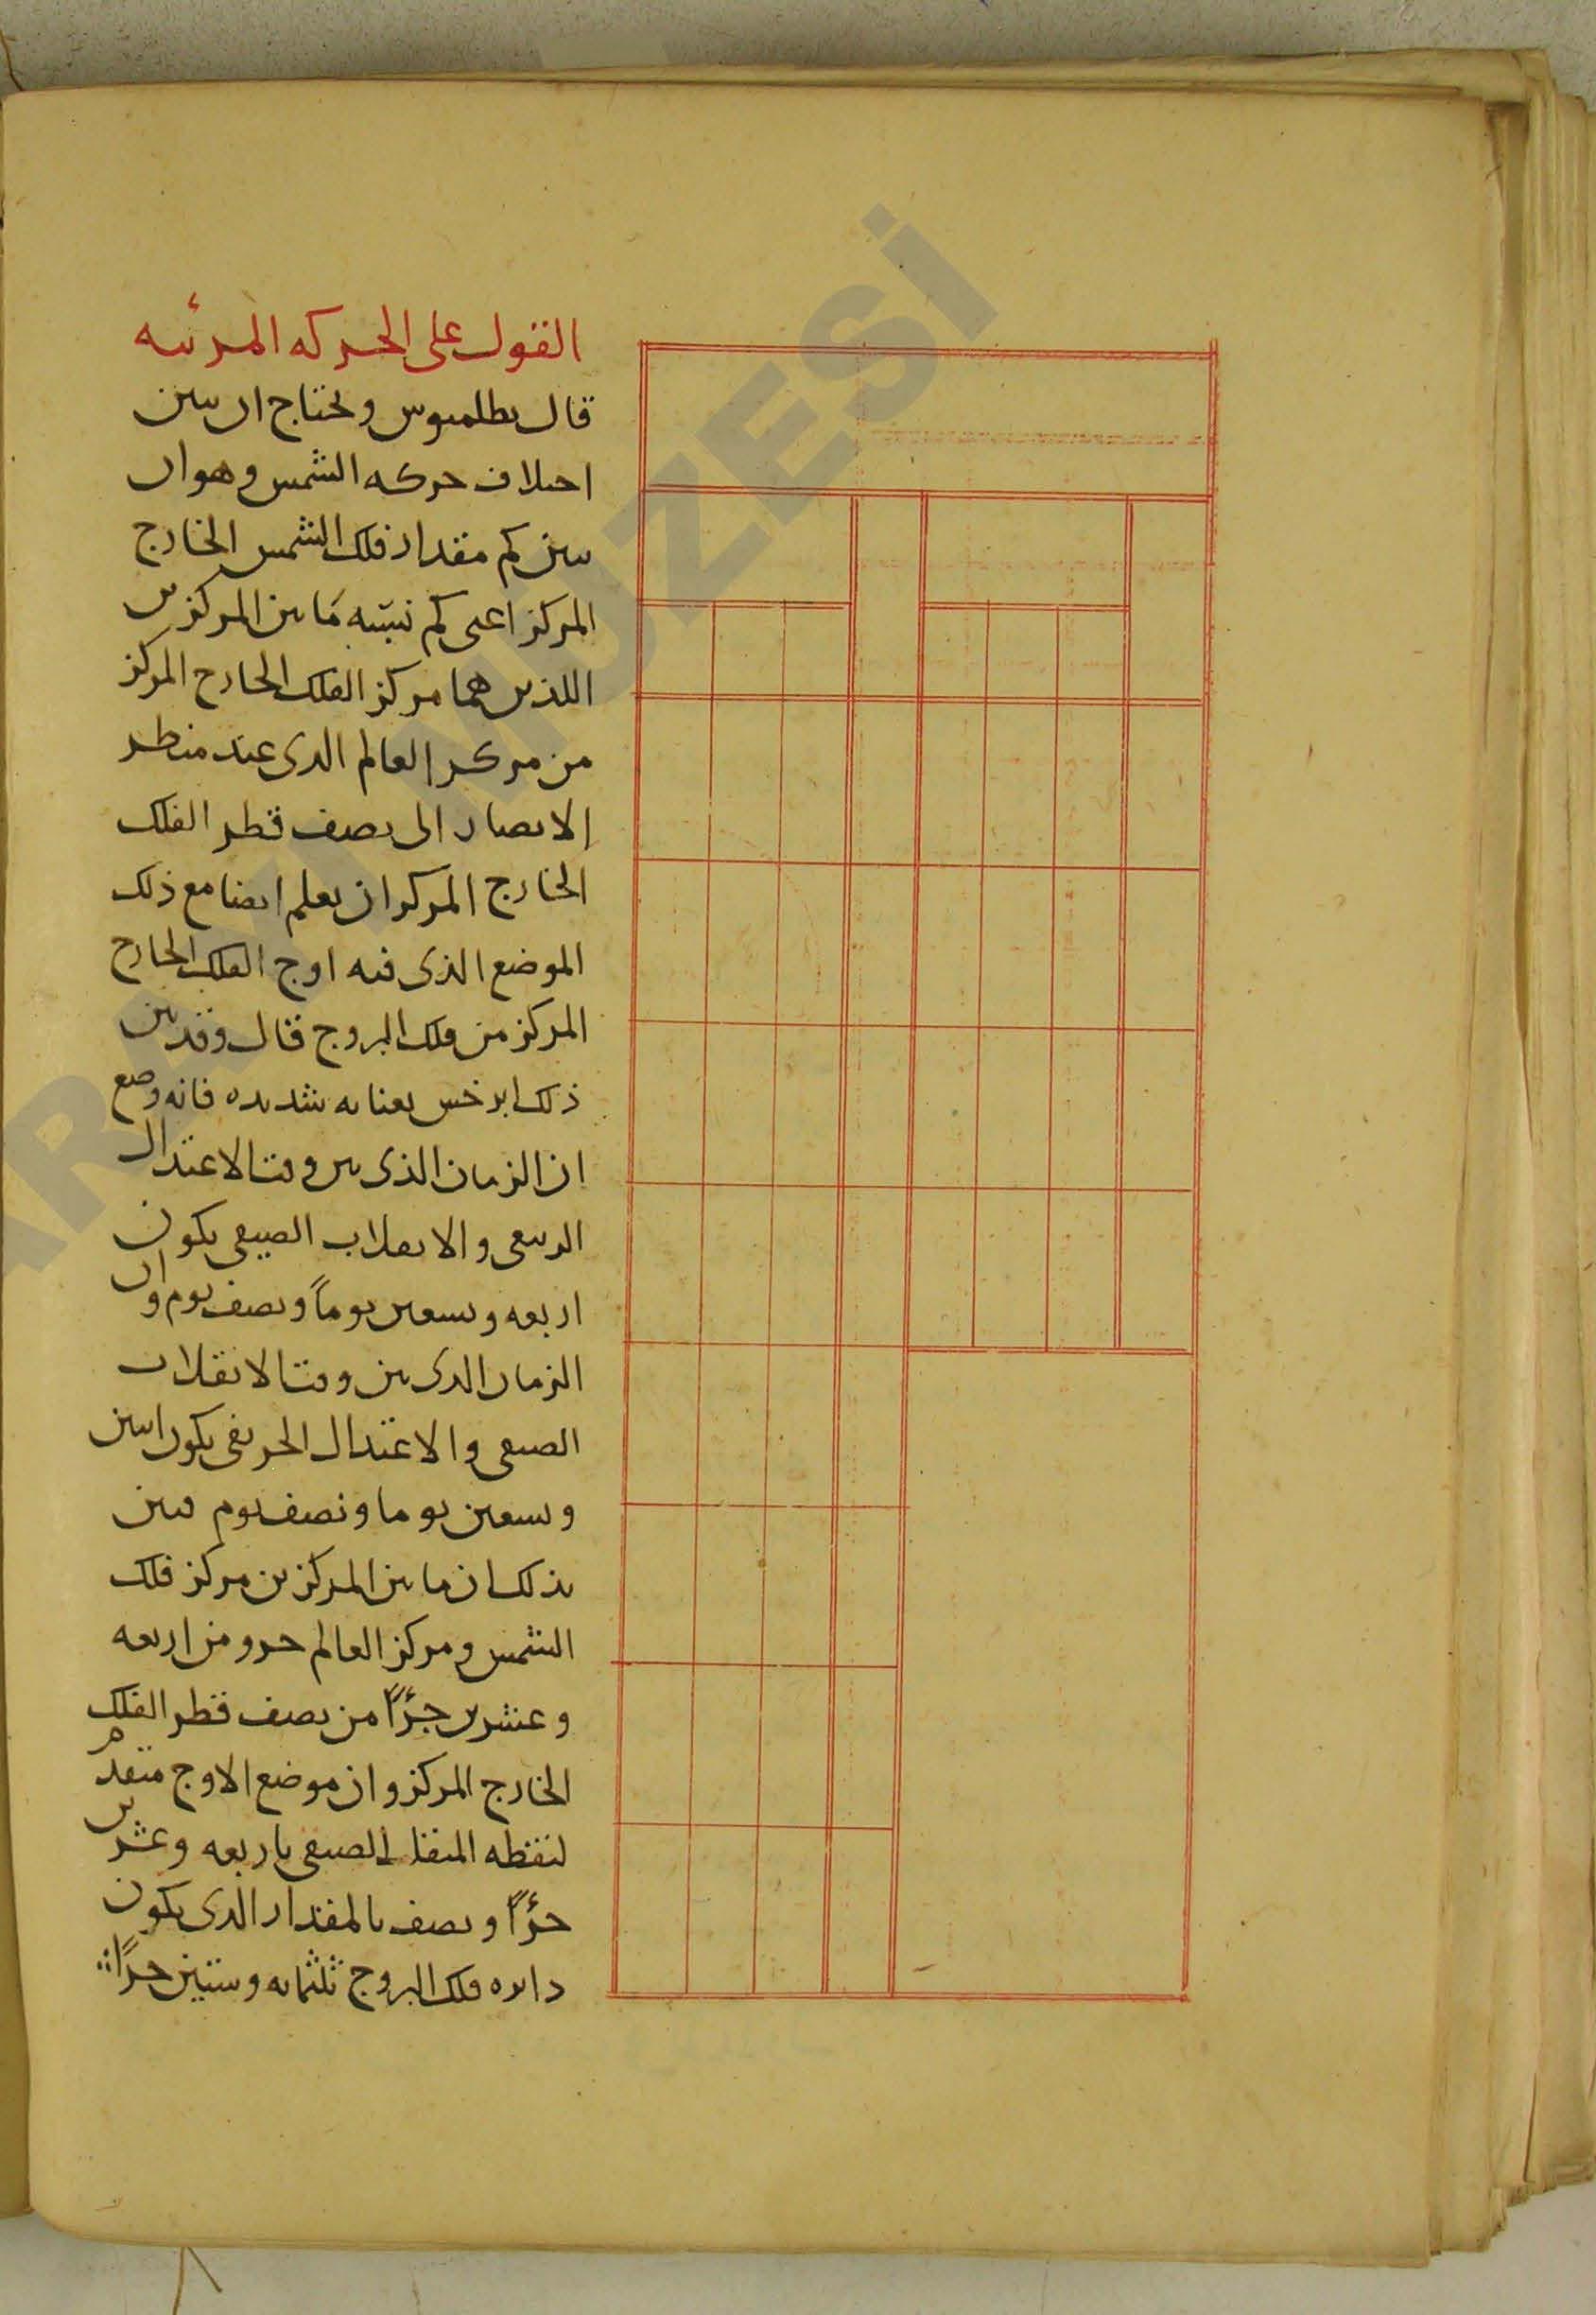 القول على الحركه المرئيه
قال بطلميوس ونحتاج ان نبين
اختلاف حركه الشمس وهو ان
نبين كم مقدار فلك الشمس الخارج
المركز اعنى كم نسبه ما بين المركزين
اللذين هما مركز الفلك الخارج المركز
من مركز العالم الذى عند منظر
الابصار الى نصف قطر الفلك
الخارج المركز ان يعلم ايضا مع ذلك
الموضع الذى فيه اوج الفلك الخارج
المركز من فلك البروج قال وقد بين
ذلك ابرخس بعنايه شديده فانه وضع
ان الزمان الذى بين وقت الاعتدال
الربيعى والانقلاب الصيفى يكون
اربعه وتسعين يوماً ونصف يوم وان
الزمان الذى بين وقت الانقلاب
الصيفى والاعتدال الخريفى يكون اثنين
وتسعين يوما ونصف يوم فبين
بذلك ان ما بين المركزين مركز فلك
الشمس ومركز العالم جزو من اربعه
وعشرين جزًا من نصف قطر الفلك
الخارج المركز وان موضع الاوج متقدم
لنقطه المنقلب الصيفى باربعه وعشرين
جزًا ونصف بالمقدار الذى يكون
دايره فلك البروج ثلثمايه وستين جزًا
MÜZESİ